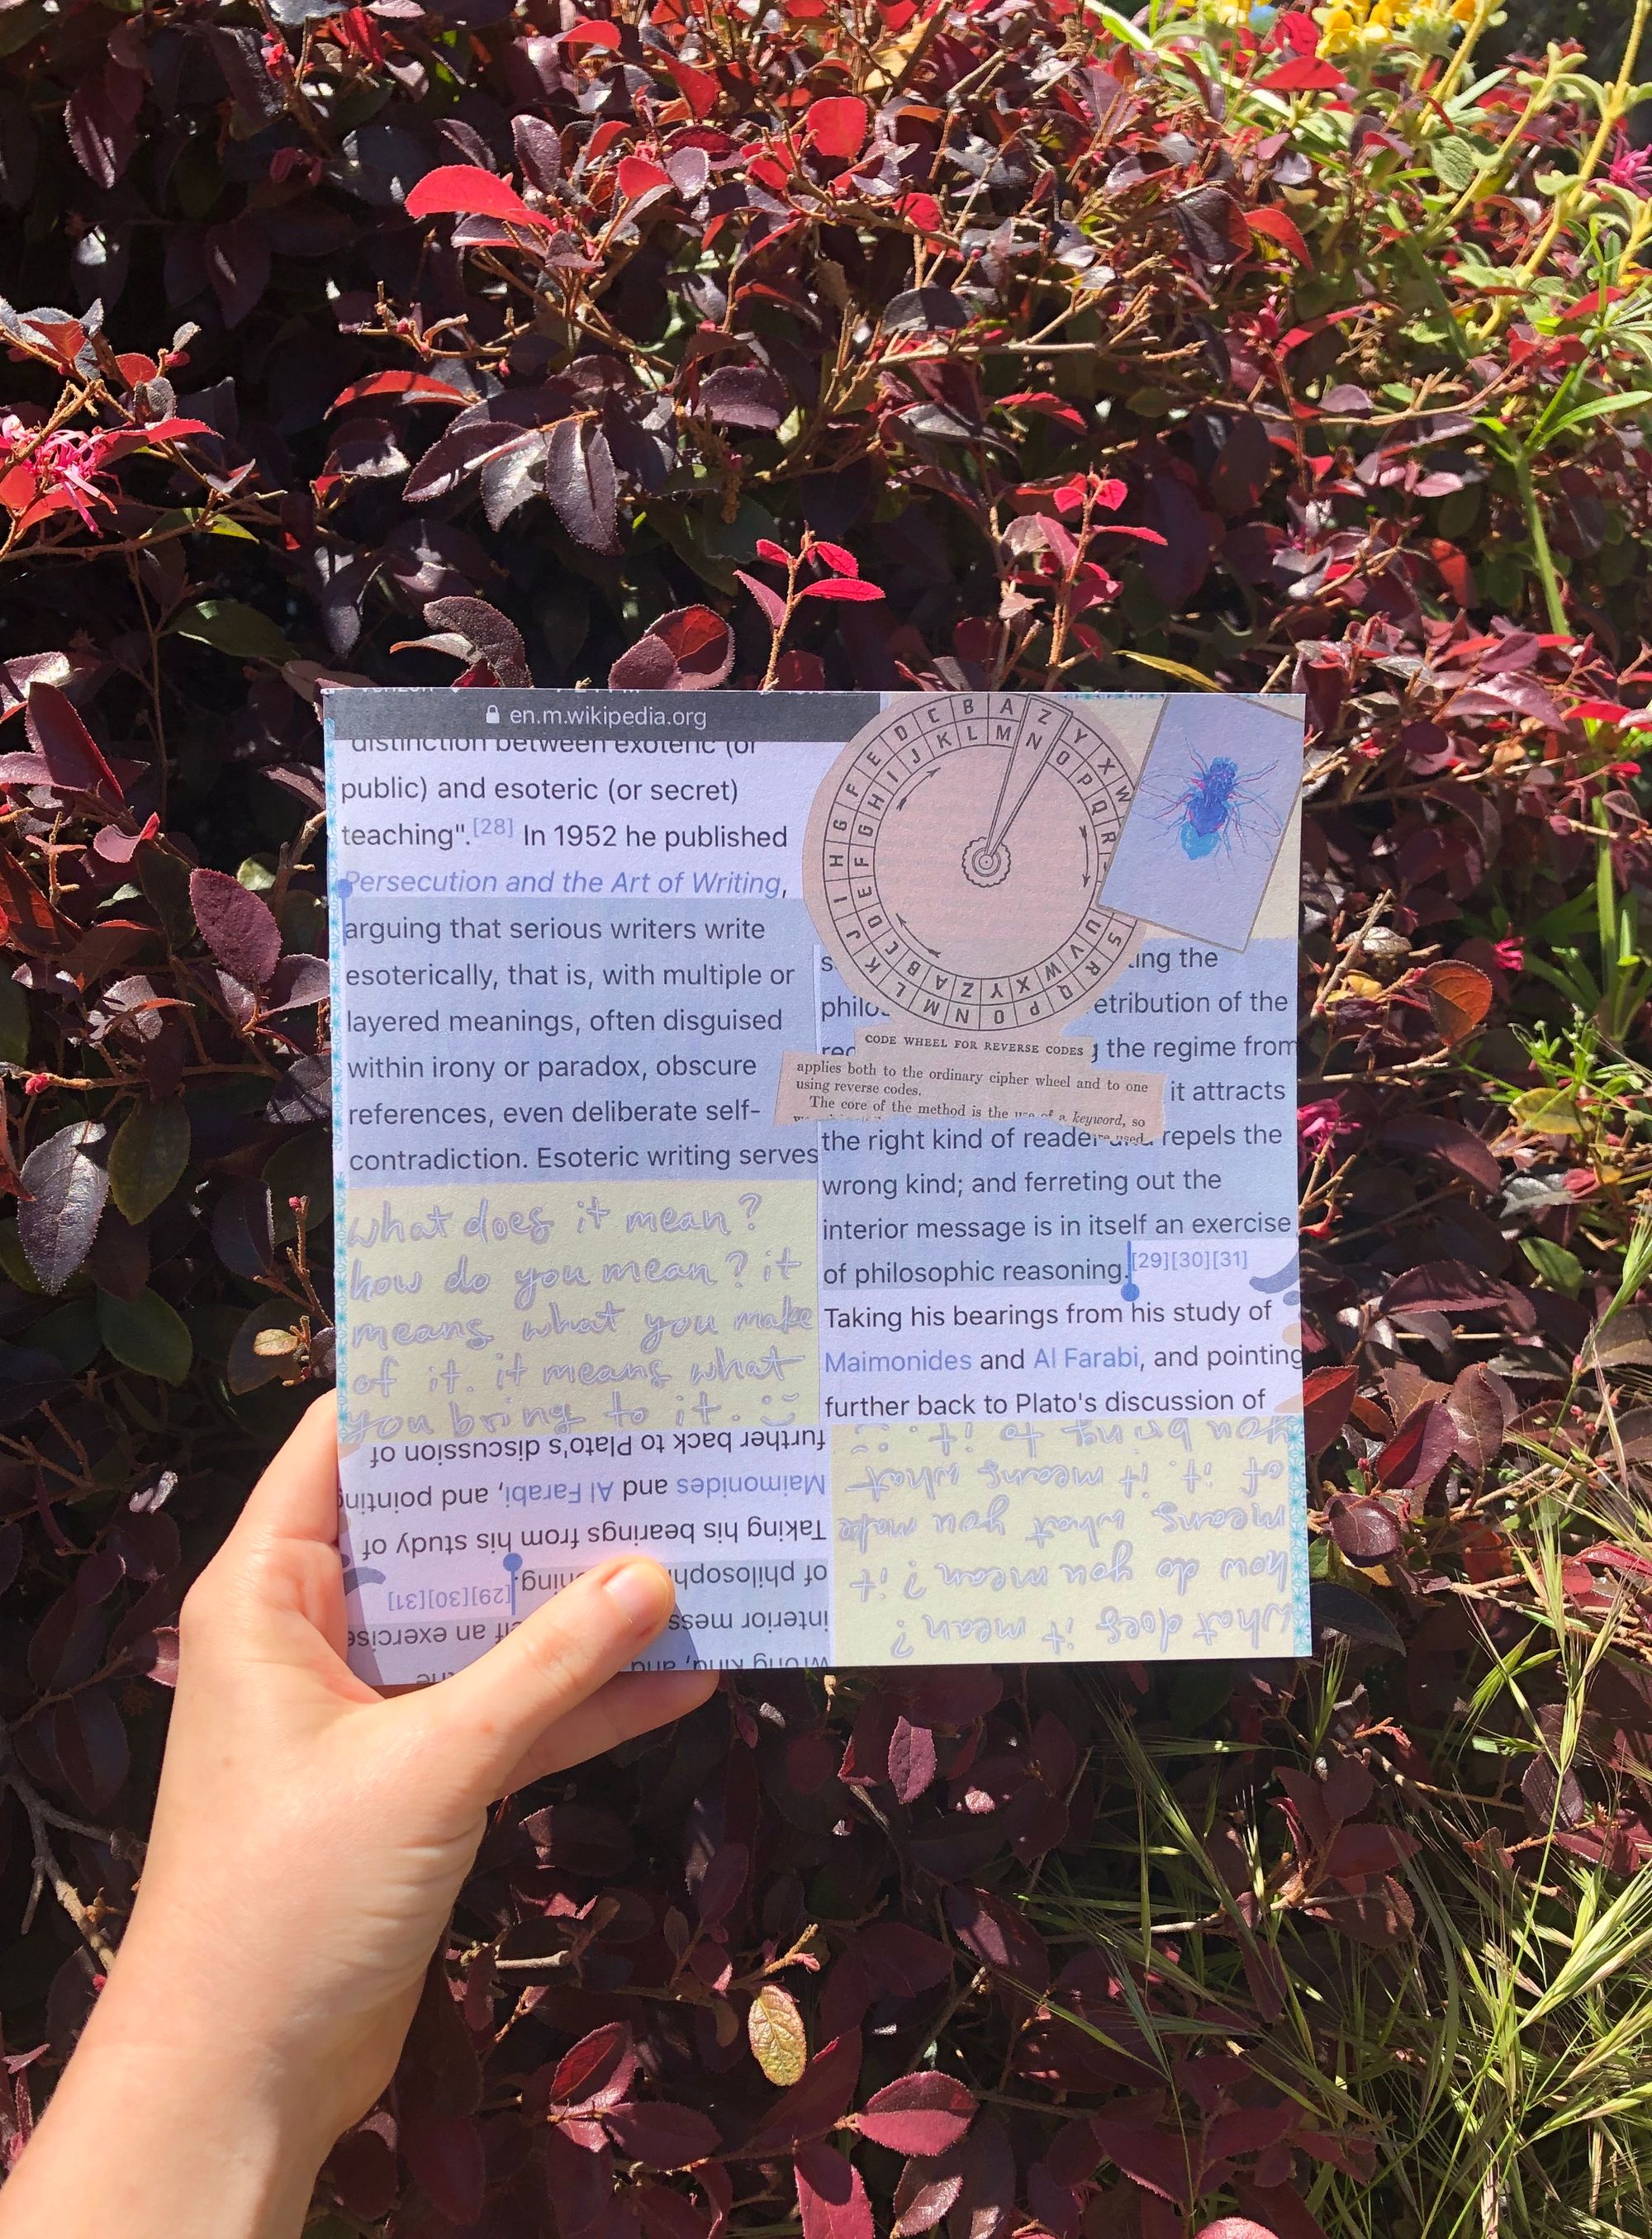 en.m.wikipedia.org
distinction between exoteric (or
public) and esoteric (or secret)
teaching".[28] In 1952 he published
Persecution and the Art of Writing,
arguing that serious writers write
esoterically, that is, with multiple or
layered meanings, often disguised
within irony or paradox, obscure
references, even deliberate self-
contradiction. Esoteric writing serves
what does it mean?
how do you mean? it
means what you make
of it. it means what
you bring to it. :)
A Z Y X W
B C D E F G H I J K L M N O P Q R S
M N O P Q R
L K J I H G F E D C B A Z Y X W V U
CODE WHEEL FOR REVERSE CODES
applies both to the ordinary cipher wheel and to one
using reverse codes.
The core of the method is the use of a keyword, so
used.
ing the
philo etribution of the
the regime from
it attracts
the right kind of reader repels the
wrong kind; and ferreting out the
interior message is in itself an exercise
of philosophic reasoning.[29][30][31]
Taking his bearings from his study of
Maimonides and Al Farabi, and pointing
further back to Plato's discussion of
further back to Plato's discussion of
Maimonides and Al Farabi, and pointing
Taking his bearings from his study of
of philosoph ning.[29][30][31]
interior mess an exercise
wrong kind; and
you bring to it. :)
of it. it means what
means what you make
how do you mean? it
what does it mean?